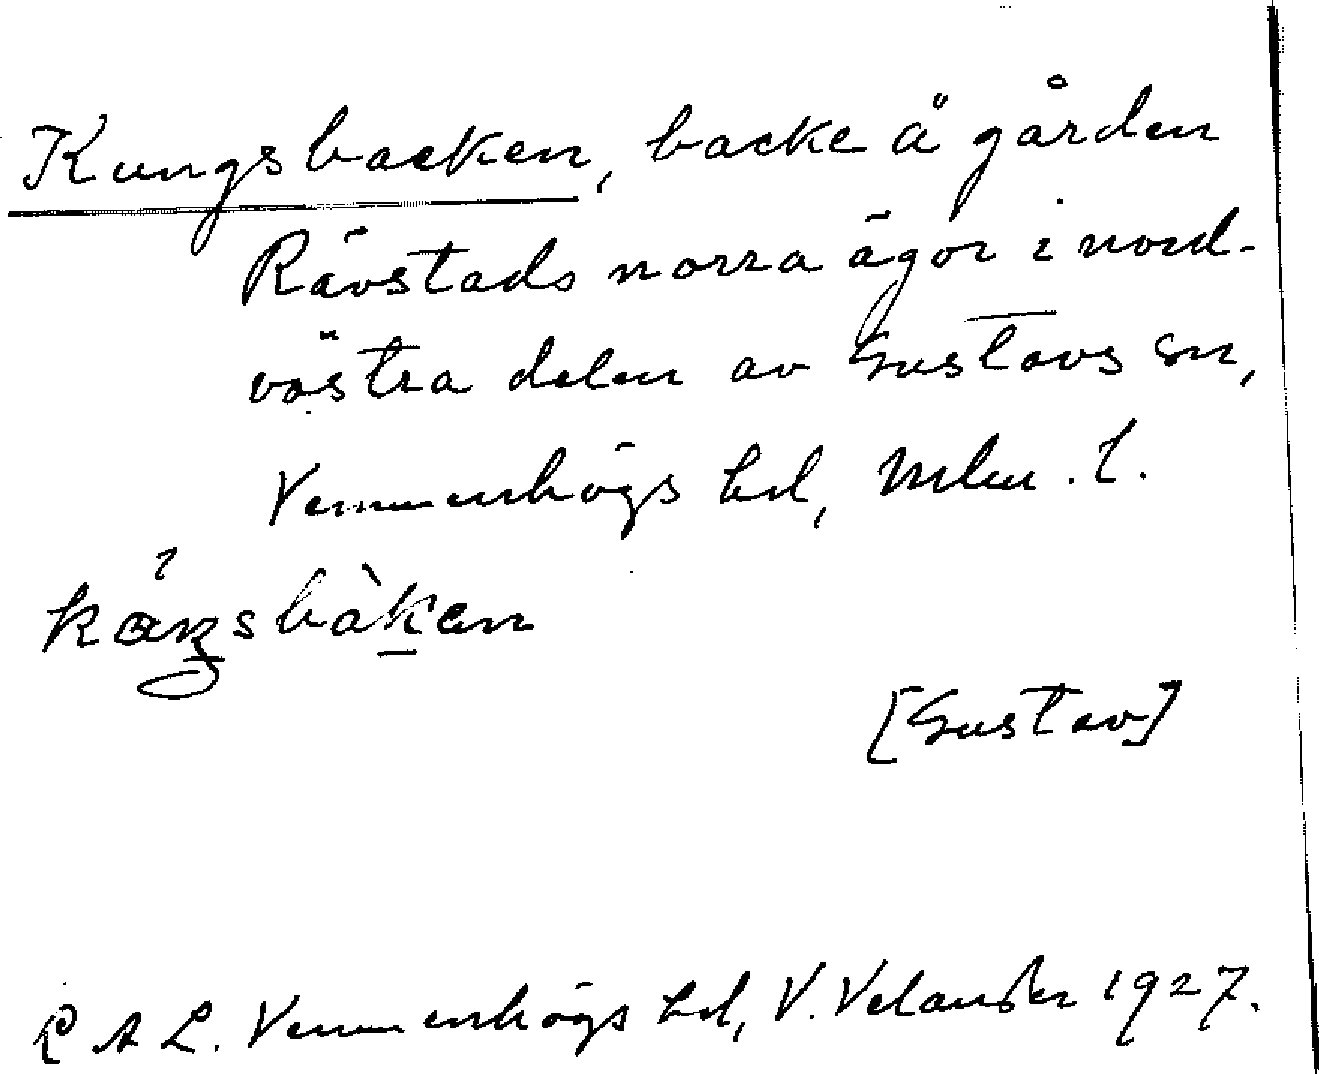 Kungsbacken, backe å gården
Rävstads norra ägor i nord-
västra delen av Gustavs sn,
Vemmenhögs hd, Mlm. l.
[Gustav]
L A L. Vemmenhögs hd, V. Velander 1927.